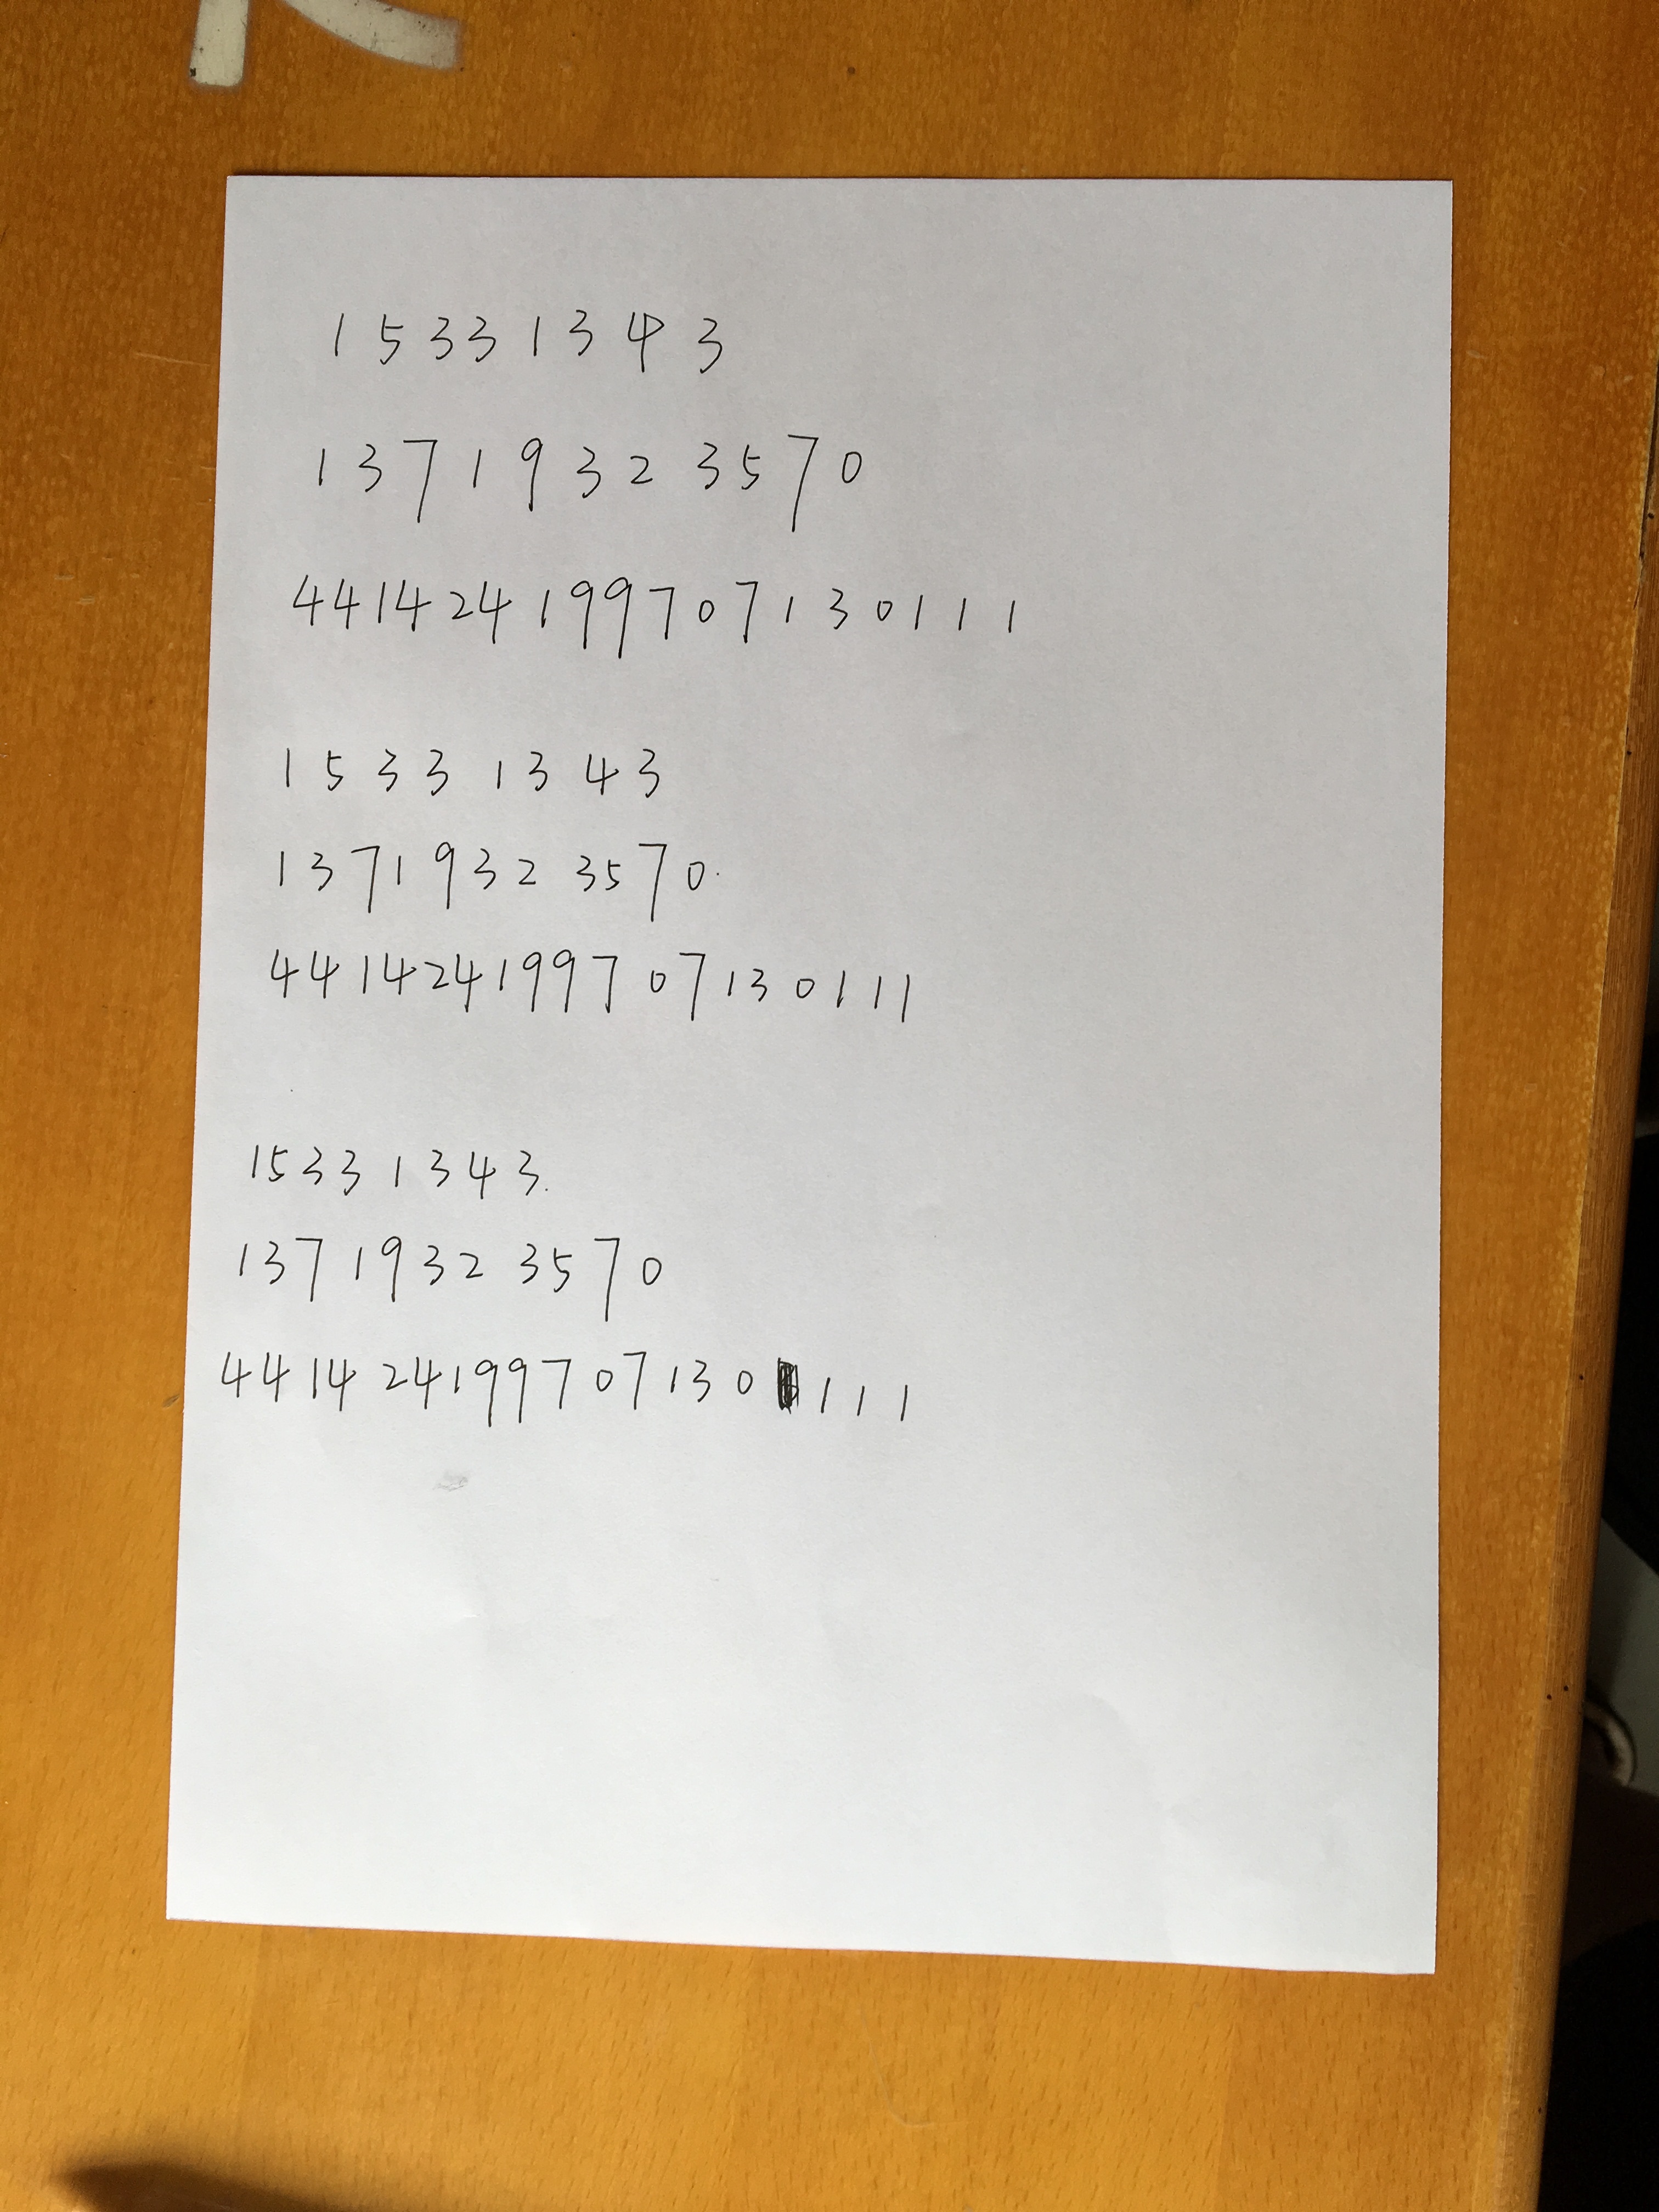 15331343
13719323570
441424199707130111
15331343
13719323570.
441424199707130111
15331343.
13719323570
441424199707130111